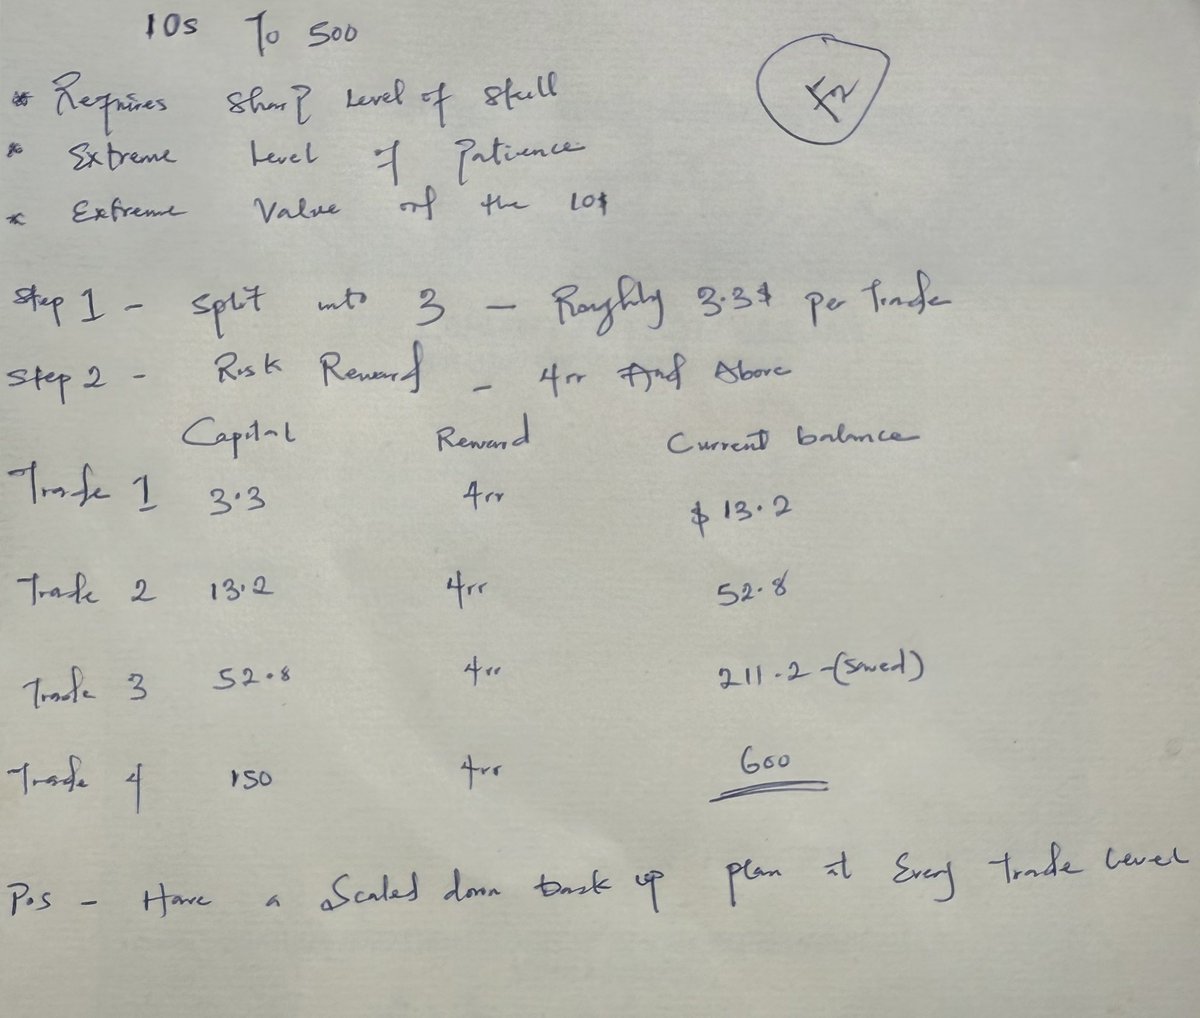 10$ To 500
F2
* Requires Sharp Level of Skill
* Extreme Level of Patience
* Extreme Value of the 10$
Step 1 - Split into 3 - Roughly 3.3$ per Trade
Step 2 - Risk Reward - 4rr And Above
Capital Reward Current balance
Trade 1 3.3 4rr $ 13.2
Trade 2 13.2 4rr 52.8
Trade 3 52.8 4rr 211.2 - (Saved)
Trade 4 150 4rr 600
P.S - Have a Scaled down back up plan at Every trade level